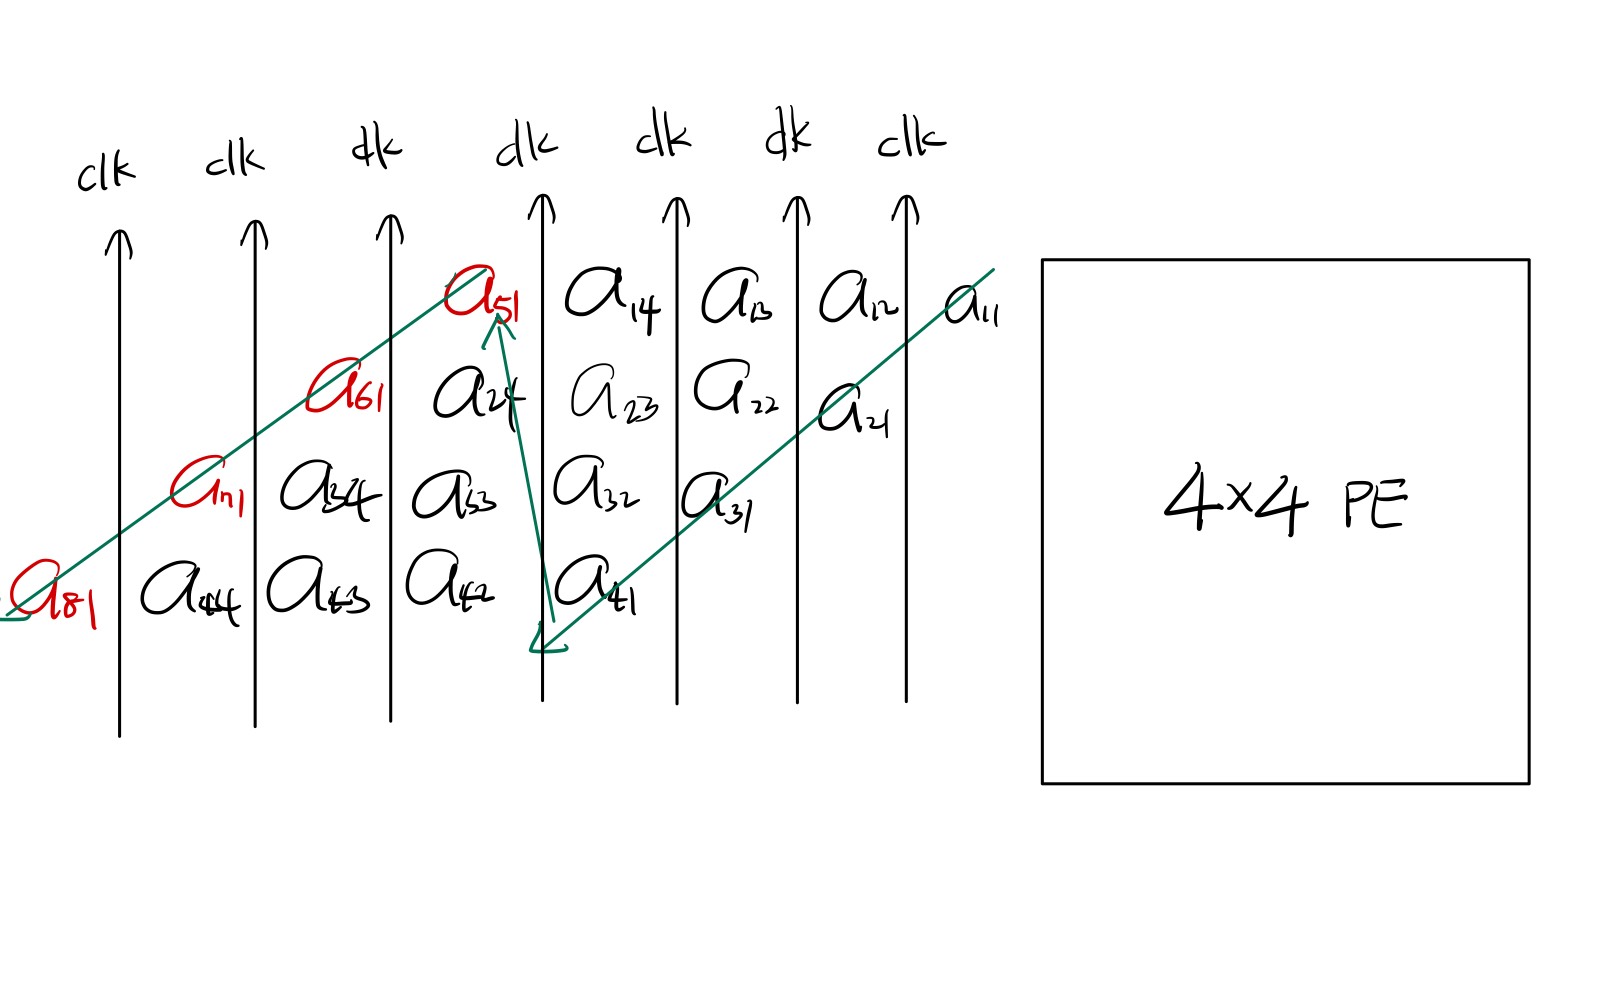 clk clk clk clk clk clk clk
a51 a14 a13 a12 a11
a61 a24 a23 a22 a21
an1 a34 a33 a32 a31
a81 a44 a43 a42 a41
4×4 PE